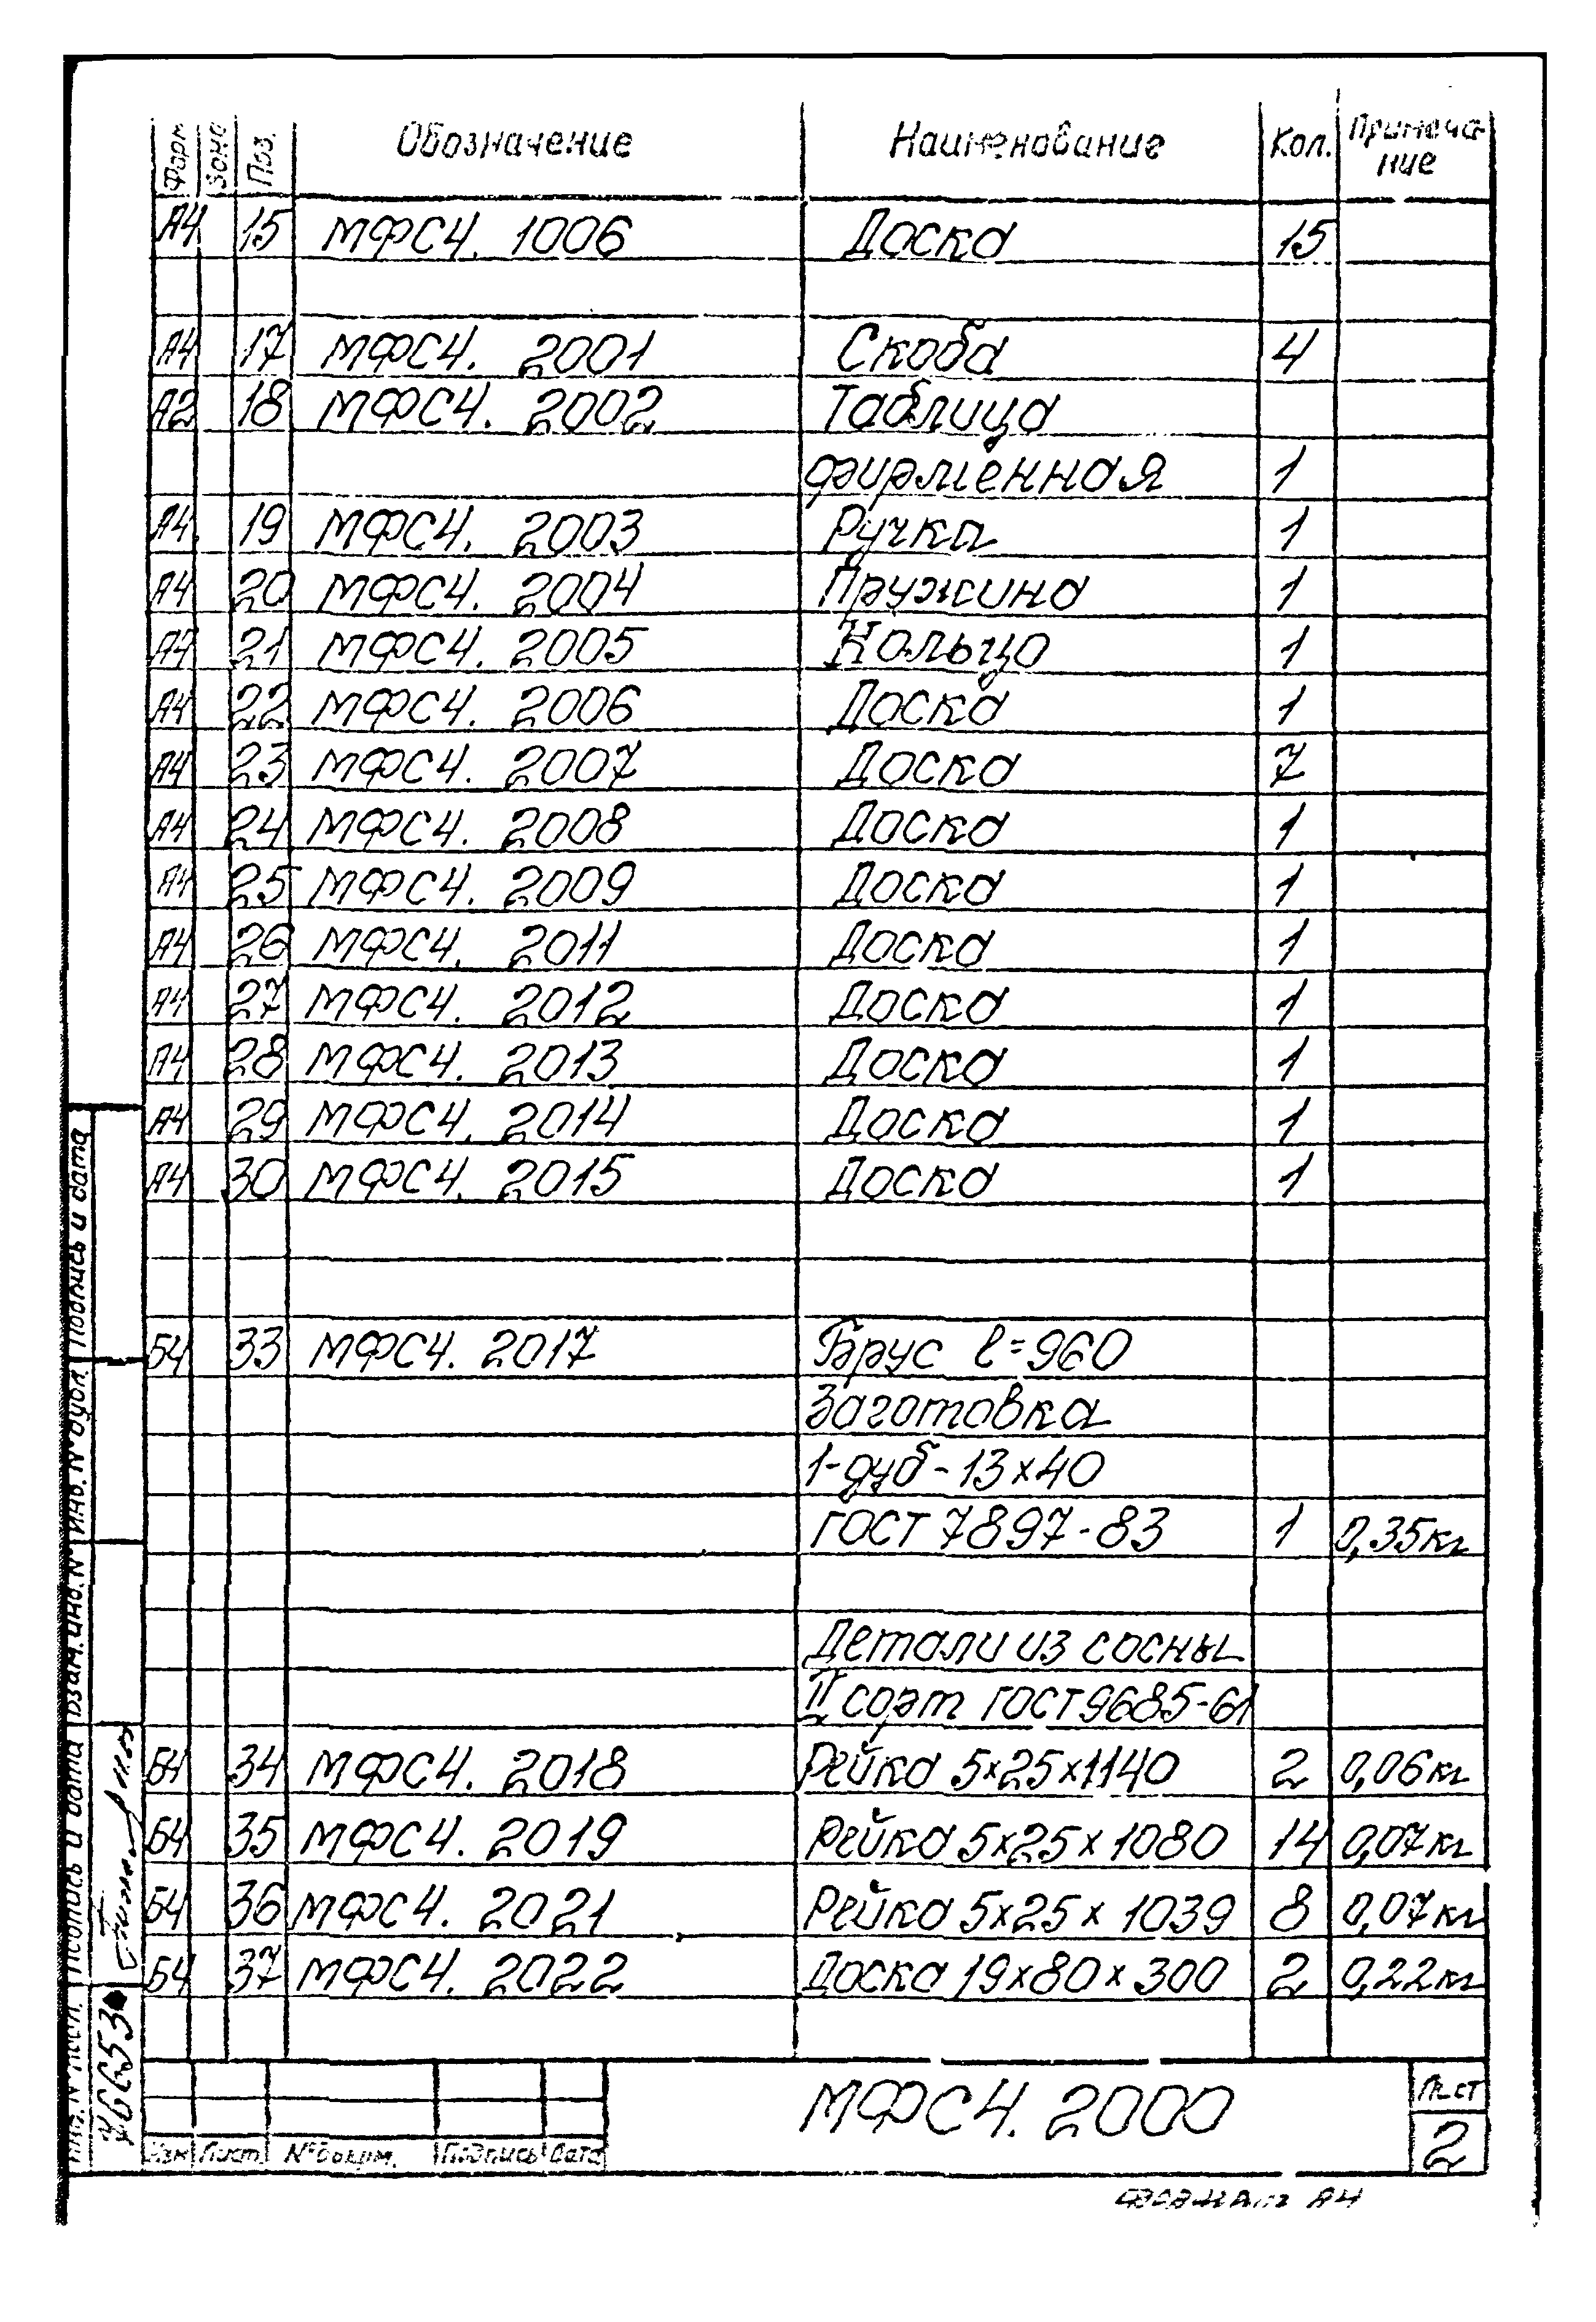 Форм. Зона Поз. Обозначение Наименование Кол. Примеча-
ние
А4 15 МФС4. 1006 Доска 15
А4 17 МФС4. 2001 Скоба 4
А2 18 МФС4. 2002 Таблица
фирменная 1
А4 19 МФС4. 2003 Ручка 1
А4 20 МФС4. 2004 Пружина 1
21 МФС4. 2005 Кольцо 1
А4 22 МФС4. 2006 Доска 1
А4 23 МФС4. 2007 Доска 7
А4 24 МФС4. 2008 Доска 1
А4 25 МФС4. 2009 Доска 1
А4 26 МФС4. 2011 Доска 1
А4 27 МФС4. 2012 Доска 1
А4 28 МФС4. 2013 Доска 1
А4 29 МФС4. 2014 Доска 1
А4 30 МФС4. 2015 Доска 1
Б4 33 МФС4. 2017 Брус ℓ=960
Заготовка
1-дуб-13×40
ГОСТ 7897-83 1 0,35кг
Детали из сосны
II сорт ГОСТ 9685-61
Б4 34 МФС4. 2018 Рейка 5×25×1140 2 0,06кг
Б4 35 МФС4. 2019 Рейка 5×25×1080 14 0,07кг
Б4 36 МФС4. 2021 Рейка 5×25×1039 8 0,07кг
Б4 37 МФС4. 2022 Доска 19×80×300 2 0,22кг
МФС4. 2000
Лист
2
Изм Лист № докум. Подпись Дата
Формат А4
Подпись и дата
Инв. № дубл.
Взам. инв. №
Подпись и дата
Инв. № подл.